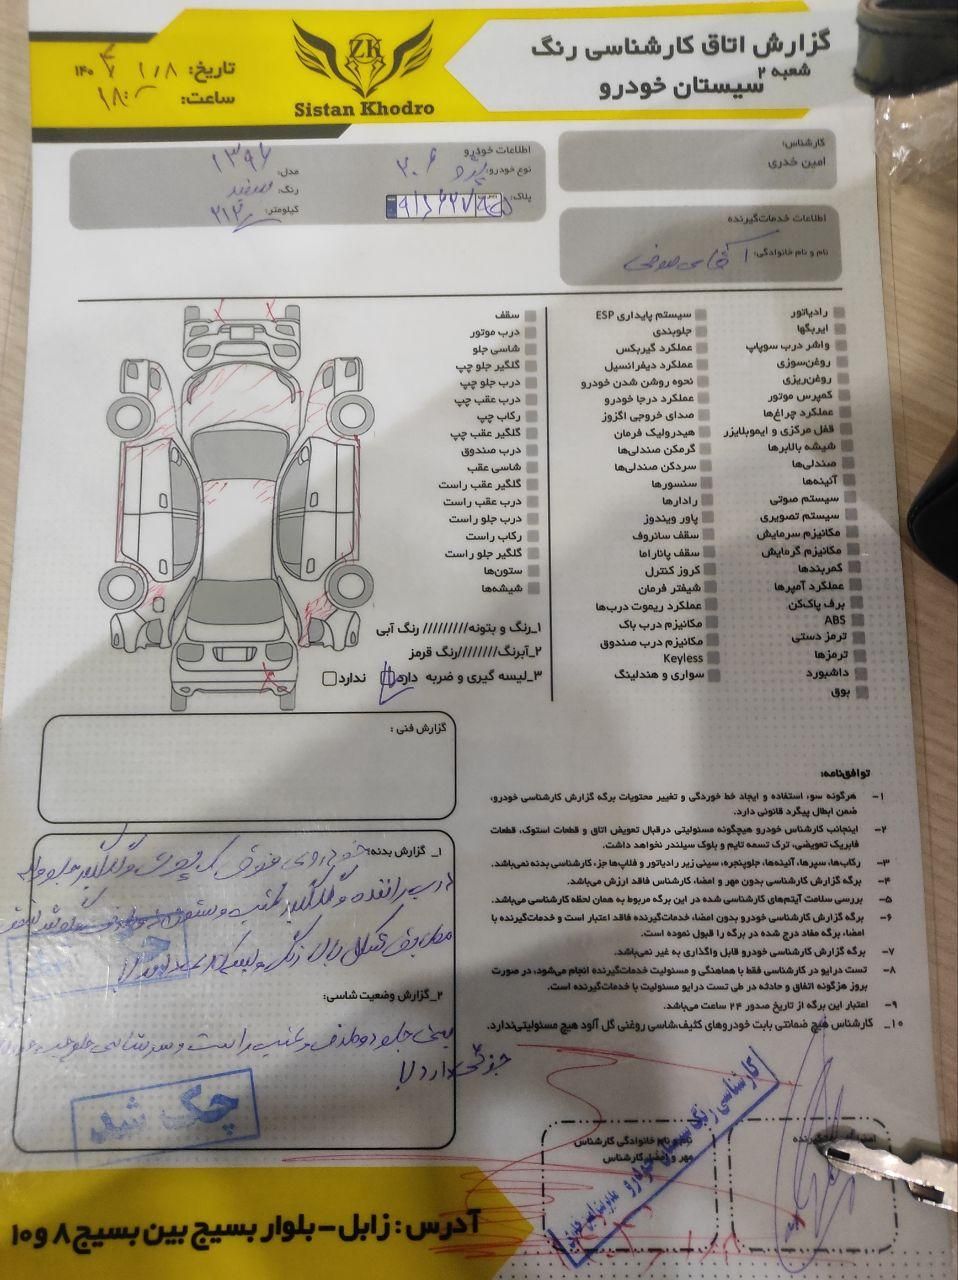 گزارش اتاق کارشناسی رنگ
شعبه ۲
سیستان خودرو
ZK
Sistan Khodro
تاریخ: ۱۴۰
ساعت:
کارشناس:
امین خدری
اطلاعات خودرو
نوع خودرو: پژو ۲۰۶
پلاک:
مدل: ۱۳۹۶
رنگ: سفید
کیلومتر:
اطلاعات خدمات‌گیرنده
نام و نام خانوادگی: آقای صوفی
رادیاتور
ایربگها
واشر درب سوپاپ
روغن‌سوزی
روغن‌ریزی
کمپرس موتور
عملکرد چراغ‌ها
قفل مرکزی و ایموبلایزر
شیشه بالابرها
صندلی‌ها
آئینه‌ها
سیستم صوتی
سیستم تصویری
مکانیزم سرمایش
مکانیزم گرمایش
کمربندها
عملکرد آمپرها
برف پاک‌کن
ABS
ترمز دستی
ترمزها
داشبورد
بوق
سیستم پایداری ESP
جلوبندی
عملکرد گیربکس
عملکرد دیفرانسیل
نحوه روشن شدن خودرو
عملکرد درجا خودرو
صدای خروجی اگزوز
هیدرولیک فرمان
گرمکن صندلی‌ها
سردکن صندلی‌ها
سنسورها
رادارها
پاور ویندوز
سقف سانروف
سقف پاناراما
کروز کنترل
شیفتر فرمان
عملکرد ریموت درب‌ها
مکانیزم درب باک
مکانیزم درب صندوق
Keyless
سواری و هندلینگ
سقف
درب موتور
شاسی جلو
گلگیر جلو چپ
درب جلو چپ
درب عقب چپ
رکاب چپ
گلگیر عقب چپ
درب صندوق
شاسی عقب
گلگیر عقب راست
درب عقب راست
درب جلو راست
رکاب راست
گلگیر جلو راست
ستون‌ها
شیشه‌ها
۱_رنگ و بتونه///////// رنگ آبی
۲_آبرنگ////////رنگ قرمز
۳_لیسه گیری و ضربه دارد ندارد
گزارش فنی :
توافق‌نامه:
۱- هرگونه سوء استفاده و ایجاد خط خوردگی و تغییر محتویات برگه گزارش کارشناسی خودرو،
ضمن ابطال پیگرد قانونی دارد.
۲- اینجانب کارشناس خودرو هیچگونه مسئولیتی درقبال تعویض اتاق و قطعات استوک، قطعات
فابریک تعویضی، ترک تسمه تایم و بلوک سیلندر نخواهد داشت.
۳- رکاب‌ها، سپرها، آئینه‌ها، جلوپنجره، سینی زیر رادیاتور و فلاپ‌ها جزء کارشناسی بدنه نمی‌باشد.
۴- برگه گزارش کارشناسی بدون مهر و امضاء کارشناس فاقد ارزش می‌باشد.
۵- بررسی سلامت آیتم‌های کارشناسی شده در این برگه مربوط به همان لحظه کارشناسی می‌باشد.
۶- برگه گزارش کارشناسی خودرو بدون امضاء خدمات‌گیرنده فاقد اعتبار است و خدمات‌گیرنده با
امضاء برگه مفاد درج شده در برگه را قبول نموده است.
۷- برگه گزارش کارشناسی خودرو قابل واگذاری به غیر نمی‌باشد.
۸- تست درایو در کارشناسی فقط با هماهنگی و مسئولیت خدمات‌گیرنده انجام می‌شود، در صورت
بروز هرگونه اتفاق و حادثه در طی تست درایو مسئولیت با خدمات‌گیرنده است.
۹- اعتبار این برگه از تاریخ صدور ۲۴ ساعت می‌باشد.
۱۰_ کارشناس هیچ ضمانتی بابت خودروهای کثیف،شاسی روغنی گل آلود هیچ مسئولیتی‌ندارد.
۱_ گزارش بدنه: خودروی فوق
درب راننده و گلگیر عقب و ستون
مطابق شکل بالا رنگ و لیسه‌گیری دارد
۲_گزارش وضعیت شاسی:
سینی جلو دو طرف و عقب راست و سرشاسی جلو
جزئی دارد
چک شد
چک شد
نام و نام خانوادگی کارشناس
مهر و امضاء کارشناس
کارشناسی رنگ سیستان خودرو
آدرس : زابل-بلوار بسیج بین بسیج ۸ و ۱۰